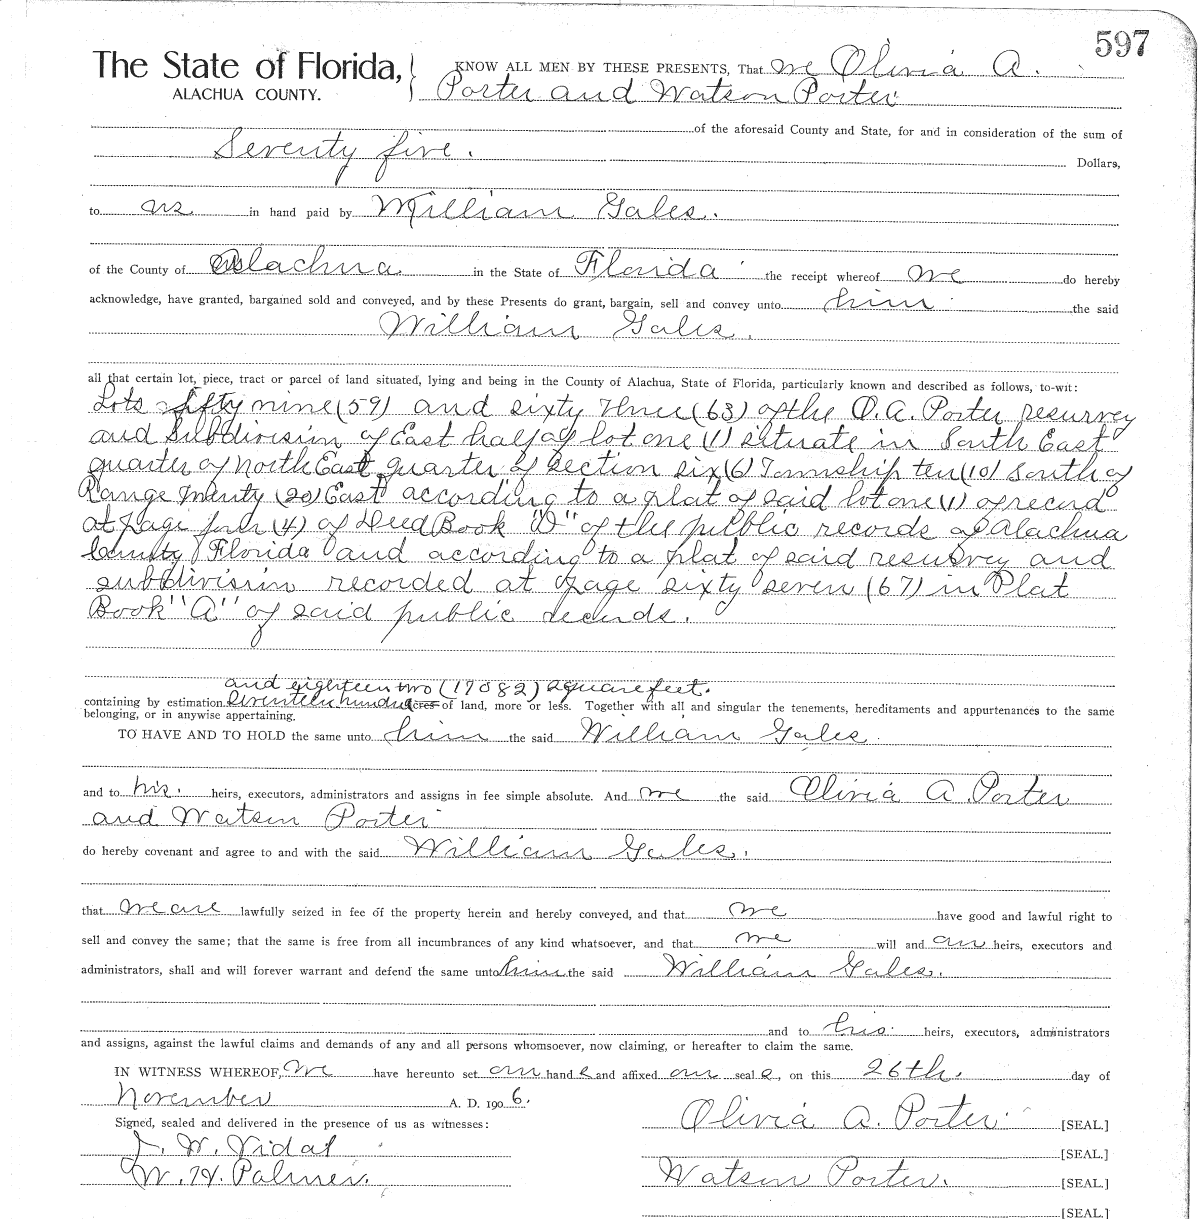 597
The State of Florida,
ALACHUA COUNTY.
KNOW ALL MEN BY THESE PRESENTS, That we Olivia A.
Porter and Watson Porter
of the aforesaid County and State, for and in consideration of the sum of
Seventy five. Dollars,
to us in hand paid by William Gales.
of the County of Alachua in the State of Florida the receipt whereof we do hereby
acknowledge, have granted, bargained sold and conveyed, and by these Presents do grant, bargain, sell and convey unto him the said
William Gales.
all that certain lot, piece, tract or parcel of land situated, lying and being in the County of Alachua, State of Florida, particularly known and described as follows, to-wit:
Lots fifty nine (59) and sixty three (63) of the O.A. Porter resurvey
and Subdivision of East half of lot one (1) situate in South East
quarter of North East quarter of section six (6) Township ten (10) South of
Range Twenty (20) East according to a plat of said lot one (1) of record
at page four (4) of Deed Book "O" of the public records of Alachua
County Florida and according to a plat of said resurvey and
subdivision recorded at page sixty seven (67) in Plat
Book "A" of said public records.
and eighteen two (17082) square feet.
containing by estimation Seventeen hundred acres of land, more or less. Together with all and singular the tenements, hereditaments and appurtenances to the same
belonging, or in anywise appertaining.
TO HAVE AND TO HOLD the same unto him the said William Gales
and to his. heirs, executors, administrators and assigns in fee simple absolute. And we the said Olivia A. Porter
and Watson Porter
do hereby covenant and agree to and with the said William Gales.
that we are lawfully seized in fee of the property herein and hereby conveyed, and that we have good and lawful right to
sell and convey the same; that the same is free from all incumbrances of any kind whatsoever, and that we will and our heirs, executors and
administrators, shall and will forever warrant and defend the same unto him the said William Gales.
and to his heirs, executors, administrators
and assigns, against the lawful claims and demands of any and all persons whomsoever, now claiming, or hereafter to claim the same.
IN WITNESS WHEREOF, we have hereunto set our hand s and affixed our seal s, on this 26th. day of
November A. D. 190 6.
Signed, sealed and delivered in the presence of us as witnesses:
Olivia A. Porter [SEAL.]
J. W. Vidal [SEAL.]
W. H. Palmer. Watson Porter. [SEAL.]
[SEAL.]